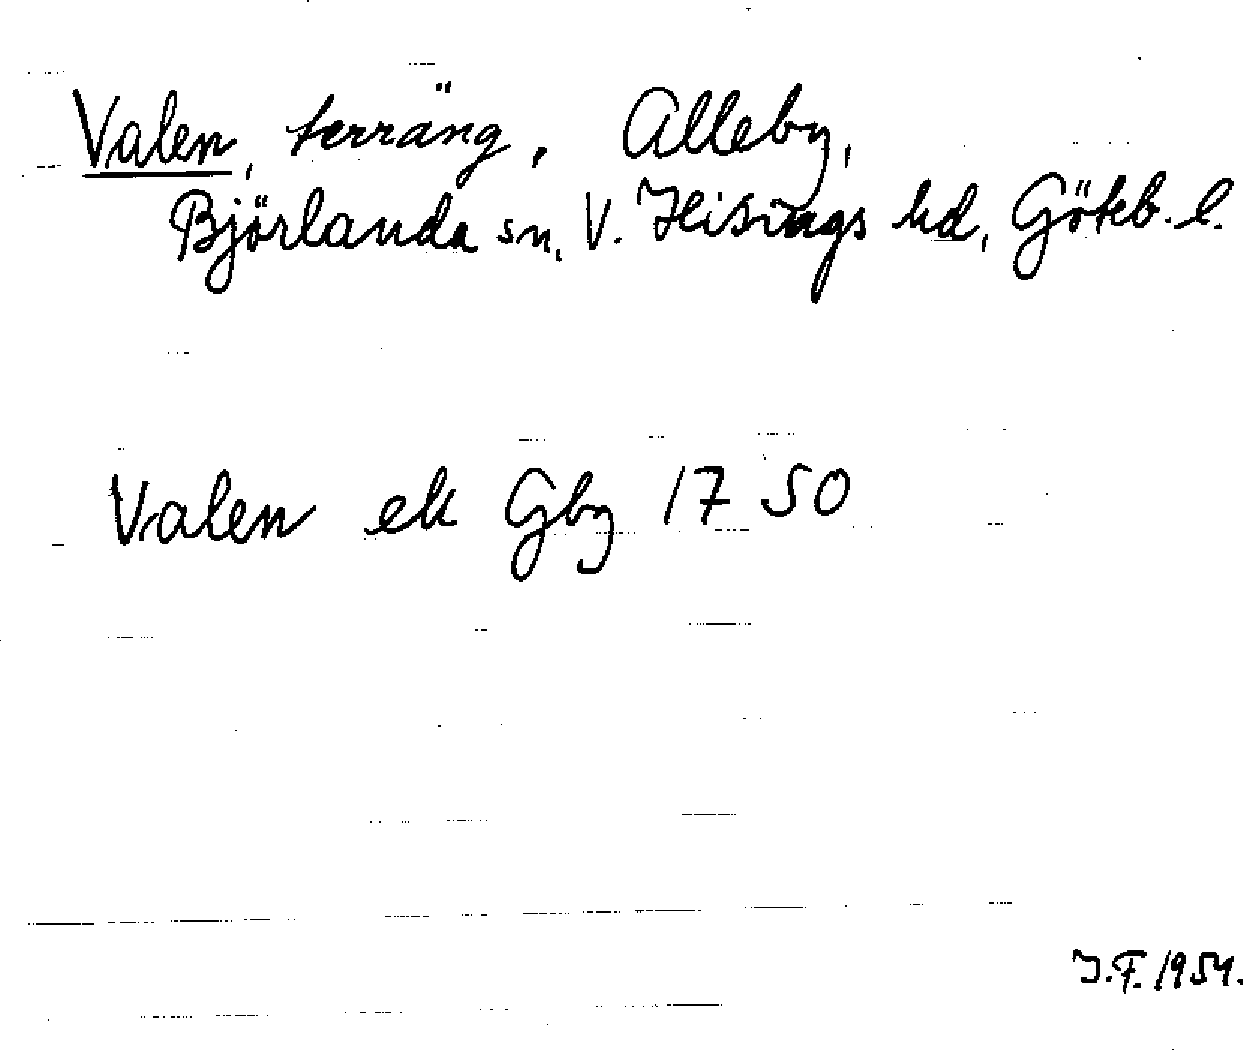 Valen, terräng, Alleby,
Björlanda sn, V. Hisings hd, Göteb. l.
Valen ek Gby 1750
J.F. 1954.